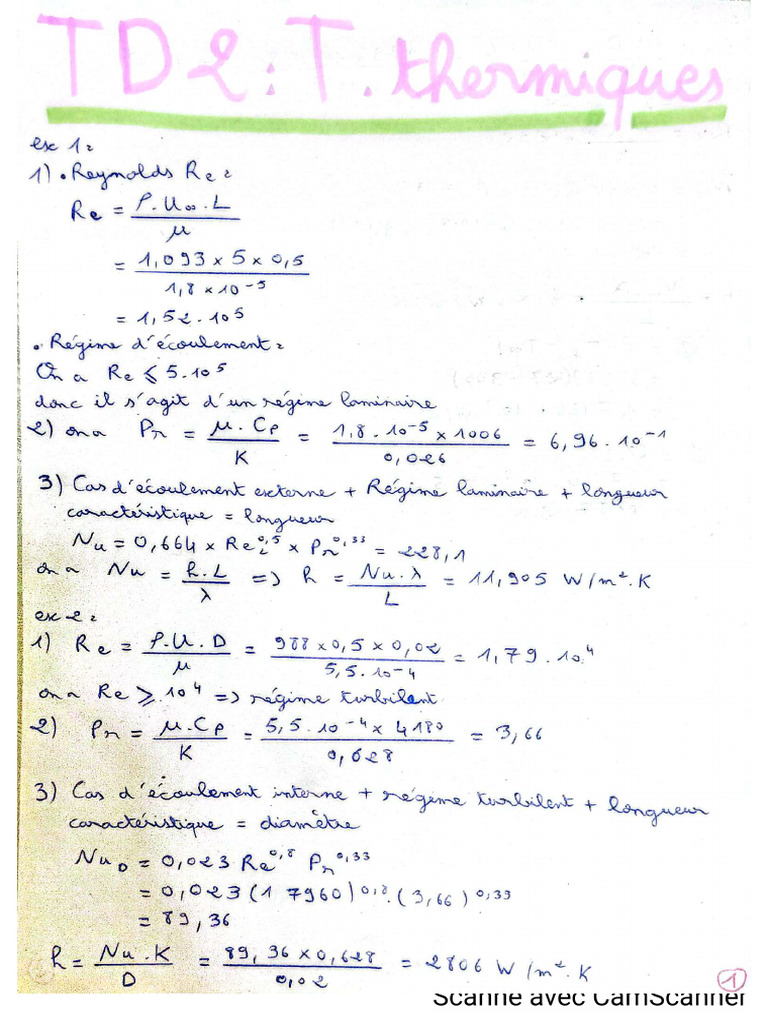 TD2: T. thermiques
ex 1:
1) • Reynolds Re:
Re = ρ.U∞.L / μ
= 1,093 x 5 x 0,5 / 1,8 x 10⁻⁵
= 1,52.10⁵
• Régime d'écoulement:
On a Re ⩽ 5.10⁵
donc il s'agit d'un régime laminaire
2) on a Pr = μ.Cp / K = 1,8.10⁻⁵ x 1006 / 0,026 = 6,96.10⁻¹
3) Cas d'écoulement externe + Régime laminaire + longueur
caractéristique = longueur
Nu = 0,664 x Re_L^0,5 x Pr^0,33 = 228,1
on a Nu = h.L / λ => h = Nu.λ / L = 11,905 W/m².K
ex 2:
1) Re = ρ.U.D / μ = 988 x 0,5 x 0,02 / 5,5.10⁻⁴ = 1,79.10⁴
on a Re ⩾ 10⁴ => régime turbilent
2) Pr = μ.Cp / K = 5,5.10⁻⁴ x 4180 / 0,628 = 3,66
3) Cas d'écoulement interne + régime turbilent + longueur
caractéristique = diamètre
Nu_D = 0,023 Re^0,8 Pr^0,33
= 0,023 (17960)^0,8 . (3,66)^0,33
= 89,36
h = Nu.K / D = 89,36 x 0,628 / 0,02 = 2806 W/m².K
1
Scanné avec CamScanner